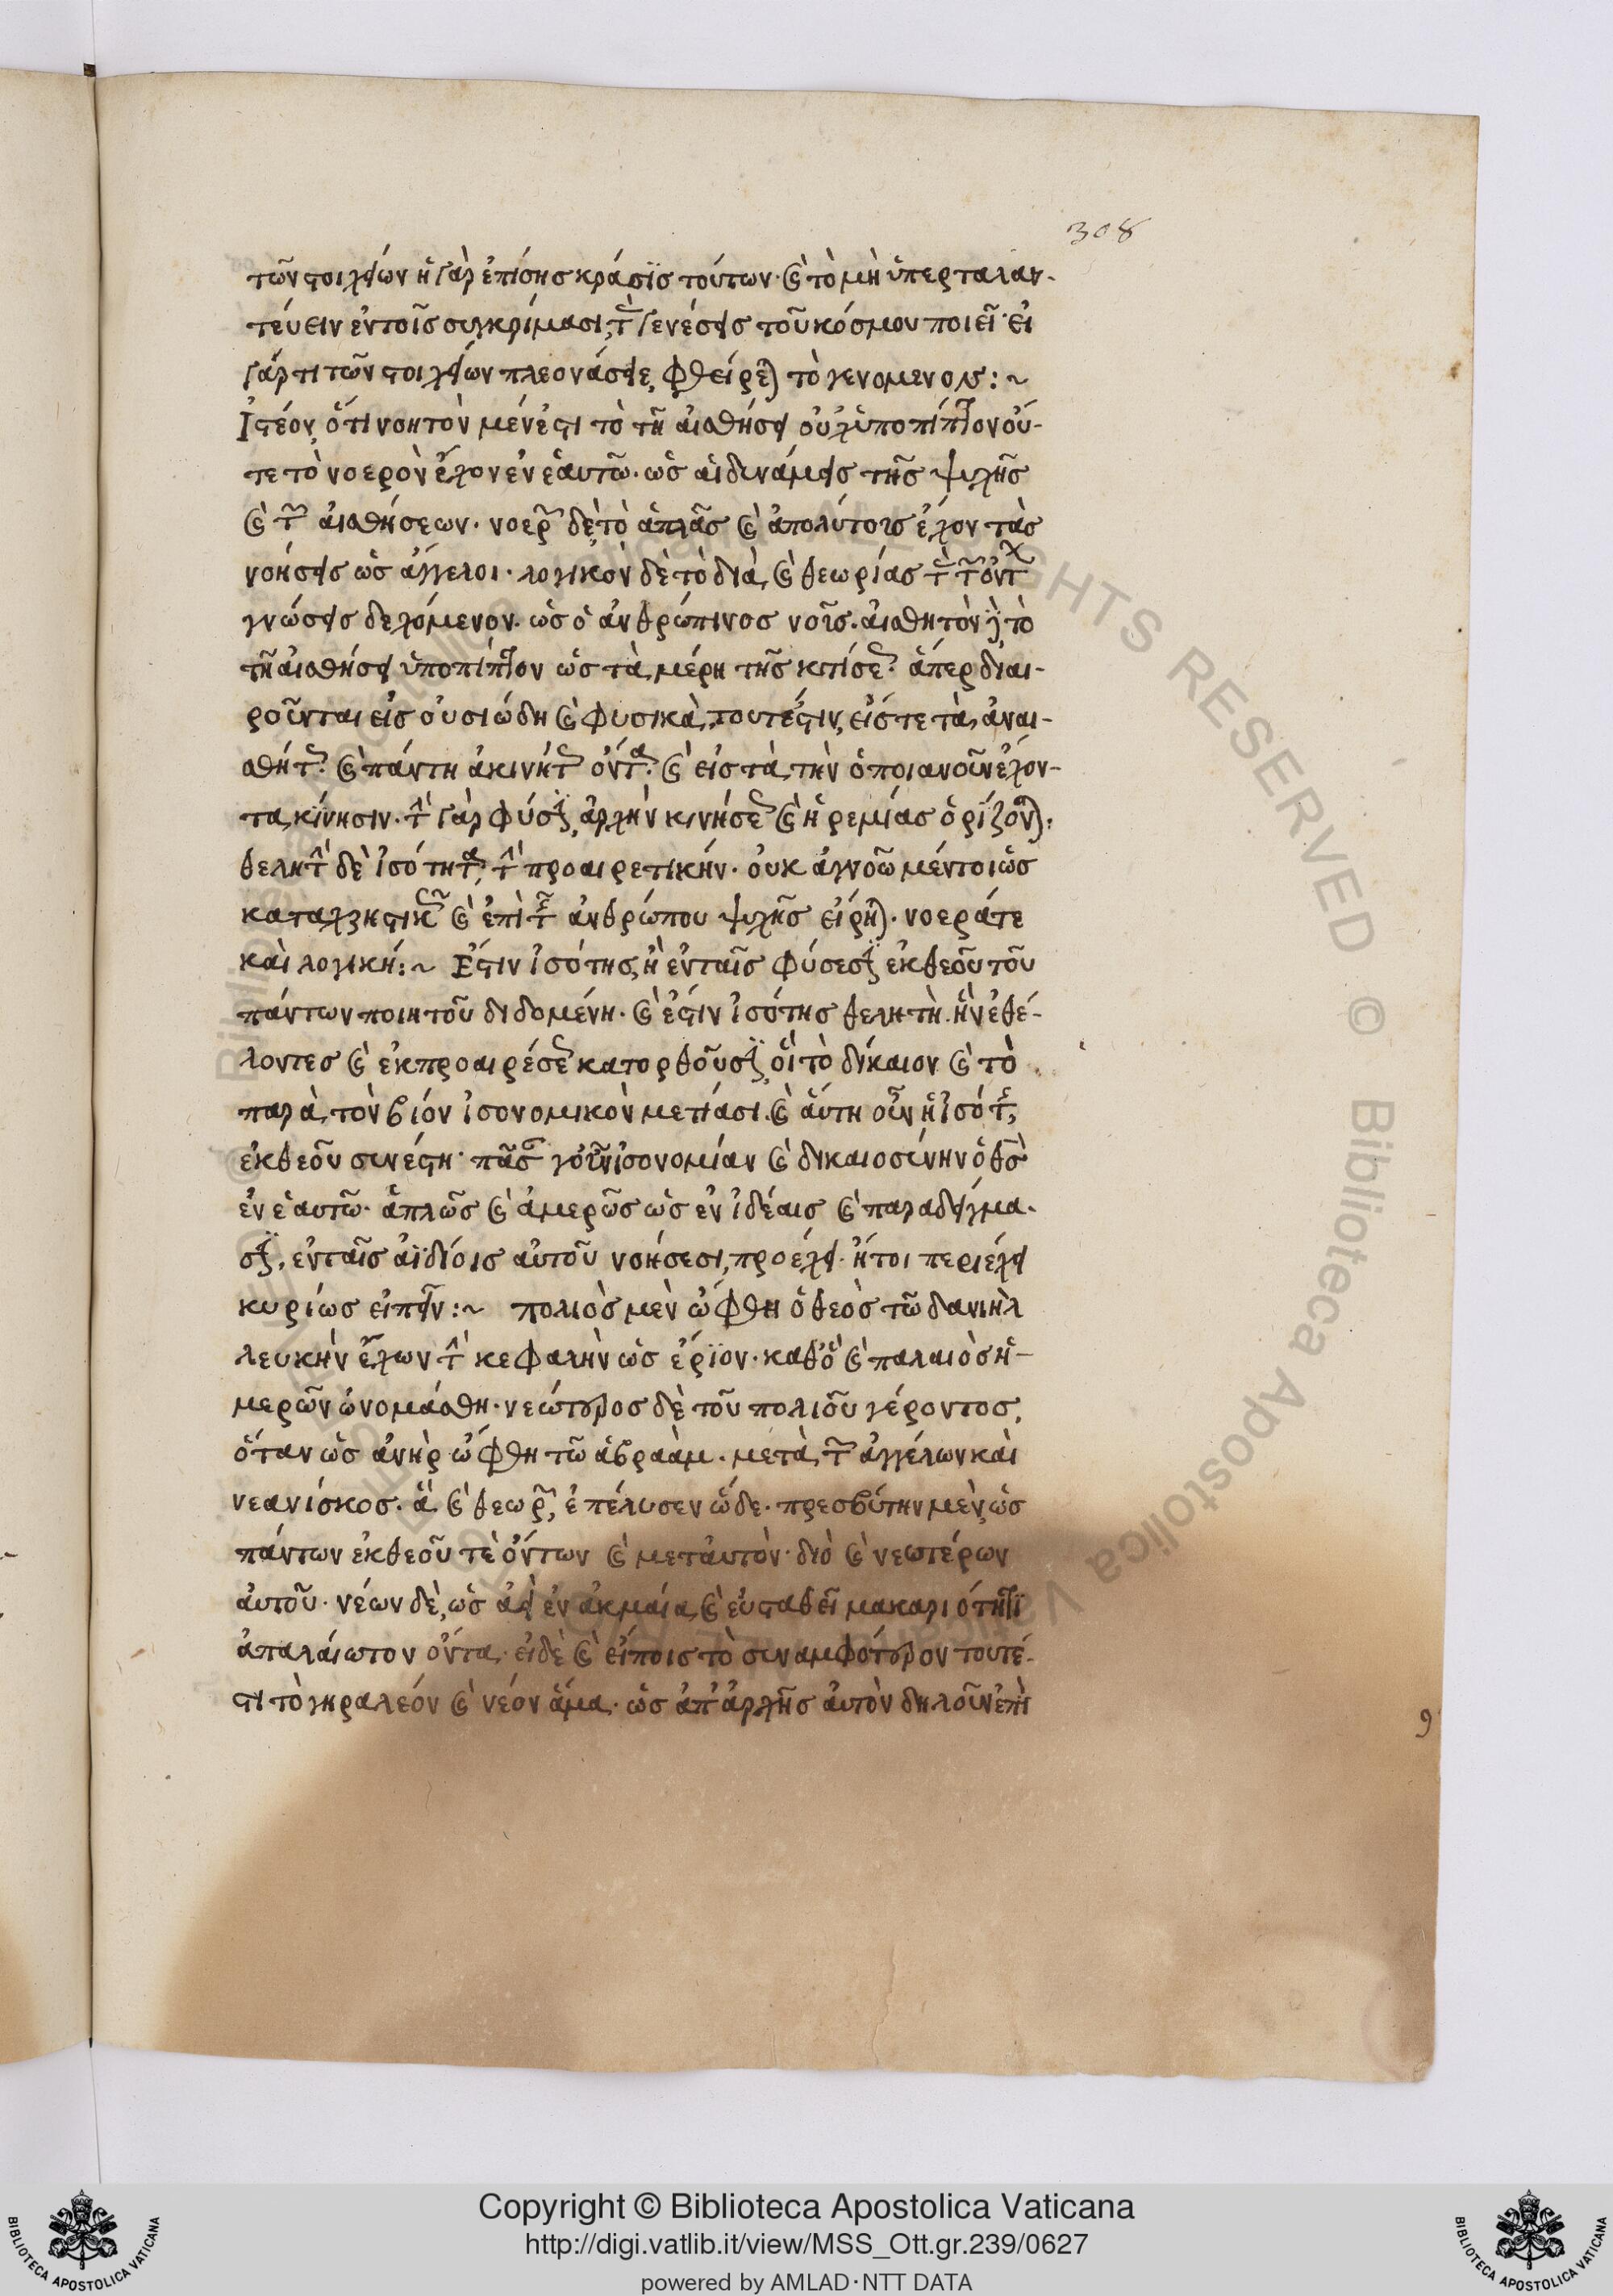 308
τῶν στοιχείων ἡ γὰρ ἐπίσης κράσϊς τούτων· καὶ τὸ μὴ ὑπερταλαν-
τεύειν ἐν τοῖς συγκρίμασι, τὰς γενέσεις τοῦ κόσμου ποιεῖ· εἰ
γάρ τι τῶν στοιχείων πλεονάσειε, φθείρεται τὸ γενόμενον :~
Ἰστέον, ὅτι νοητὸν μέν ἐστι τὸ τῆ αἰσθήσει οὐχ ὑποπίπτον οὔ-
τε τὸ νοερὸν ἔχον ἐν ἑαυτῶ· ὡς αἱ δυνάμεις τῆς ψυχῆς
καὶ τῶν αἰσθήσεων· νοερὸν δὲ τὸ ἁπλᾶς καὶ ἀπολύτους ἔχον τὰς
νοήσεις ὡς ἄγγελοι· λογικὸν δὲ τὸ διὰ καὶ θεωρίας τὰς τῶν ὄντων
γνώσεις δεχόμενον· ὡς ὁ ἀνθρώπινος νοῦς. αἰσθητὸν δὲ τὸ
τῆ αἰσθήσει ὑποπίπτον ὡς τὰ μέρη τῆς κτίσεως· ἅπερ διαι-
ροῦνται εἰς οὐσιώδη καὶ φυσικὰ, τουτέστιν, εἴς τε τὰ ἀναι-
σθητα· καὶ πάντη ἀκίνητα ὄντα· καὶ εἰς τὰ τὴν ὁποιανοῦν ἔχον-
τα κίνησιν· τὴν γὰρ φύσϊν, ἀρχὴν κινήσεως καὶ ἠρεμίας ὁρίζονται:
θελητὴν δὲ ἰσότητα, τὴν προαιρετικήν· οὐκ ἀγνοῶ μέντοι ὡς
καταχρηστικῶς καὶ ἐπὶ τῆς ἀνθρώπου ψυχῆς εἴρηται· νοερά τε
καὶ λογική :~ Ἔστιν ἰσότης, ἡ ἐν ταῖς φύσεσϊν ἐκ θεοῦ τοῦ
πάντων ποιητοῦ διδομένη· καὶ ἔστιν ἰσότης θελητὴ. ἣν ἐθέ-
λοντες καὶ ἐκ προαιρέσεως κατορθοῦσϊν, οἱ τὸ δίκαιον καὶ τὸ
παρὰ τὸν βίον ἰσονομικὸν μετίασι. καὶ αὕτη οὖν ἡ ἰσότης,
ἐκ θεοῦ συνέστη· πᾶσαν γοῦν ἰσονομίαν καὶ δικαιοσύνην ὁ θεὸς
ἐν ἑαυτῶ· ἁπλῶς καὶ ἀμερῶς ὡς ἐν ἰδέαις καὶ παραδείγμα-
σϊν, ἐν ταῖς ἀϊδίοις αὐτοῦ νοήσεσι, προέχει· ἤτοι περιέχει
κυρίως εἰπεῖν :~ πολιὸς μὲν ὤφθη ὁ θεὸς τῶ δανιὴλ
λευκὴν ἔχων τὴν κεφαλὴν ὡς ἔρϊον· καθὸ καὶ παλαιὸς ἡ-
μερῶν ὠνομάσθη· νεώτερος δὲ τοῦ πολιοῦ γέροντος,
ὅταν ὡς ἀνὴρ ὤφθη τῶ ἀβραὰμ· μετὰ τῶν ἀγγέλων καὶ
νεανίσκος· ἃ καὶ θεωρῶν, ἐπέλυσεν ὧδε· πρεσβύτην μὲν, ὡς
πάντων ἐκ θεοῦ τὲ ὄντων καὶ μετ αὐτὸν· διὸ καὶ νεωτέρων
αὐτοῦ· νέων δὲ, ὡς ἀεὶ ἐν ἀκμαία καὶ εὐσταθεῖ μακαριότητϊ
ἀπαλαίωτον ὄντα· εἰ δὲ καὶ εἴποις τὸ συναμφότερον τουτέ-
στι τὸ γηραλεόν καὶ νέον ἅμα· ὡς ἀπ ἀρχῆς αὐτὸν δηλοῦν ἐπὶ
Copyright © Biblioteca Apostolica Vaticana
http://digi.vatlib.it/view/MSS_Ott.gr.239/0627
powered by AMLAD·NTT DATA